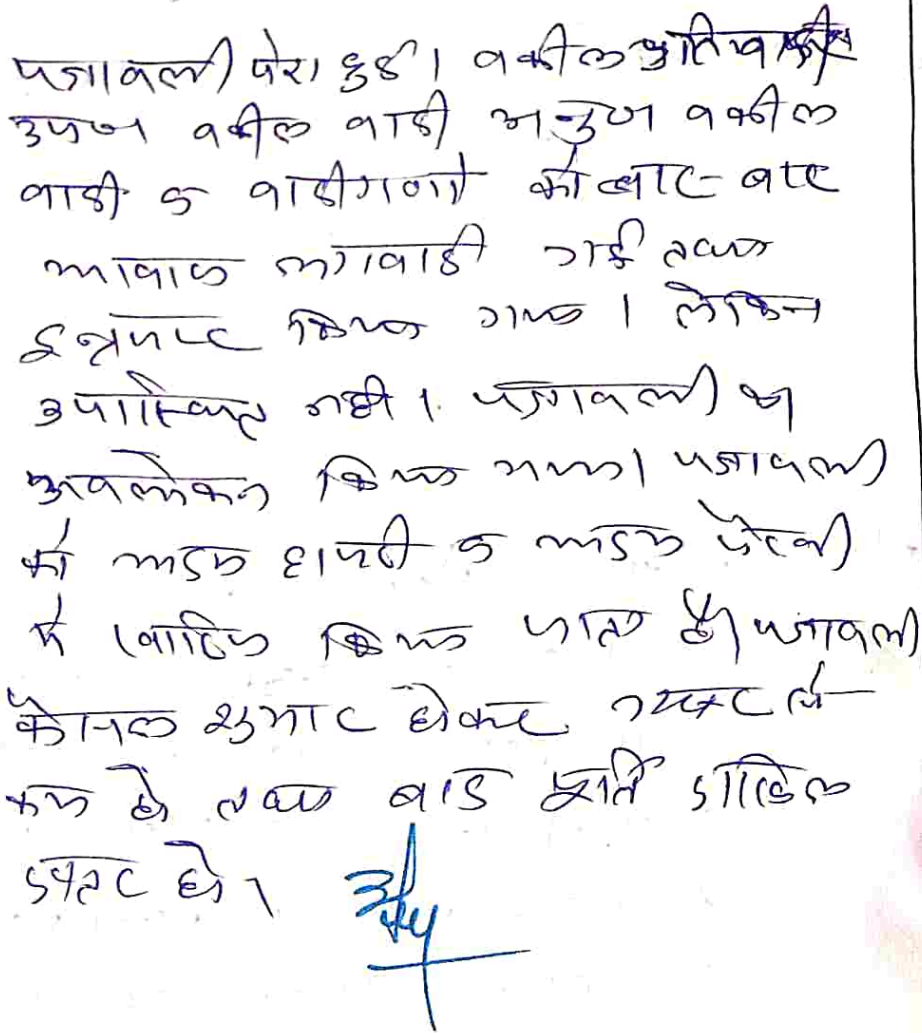 पत्रावली पेश हुई। वकील प्रतिवादी
उपज वकील वादी अनुज वकील
वादी व वादीगणों को बार-बार
आवाज लगवाई गई तथा
इन्तजार किया गया। लेकिन
उपस्थित नहीं। पत्रावली का
अवलोकन किया गया। पत्रावली
को अदम हाजरी व अदम पैरवी
में खारिज किया जाता है। पत्रावली
फैसल शुमार होकर नम्बर से
कम हो तथा बाद पूर्ति दाखिल
दफ्तर हो।